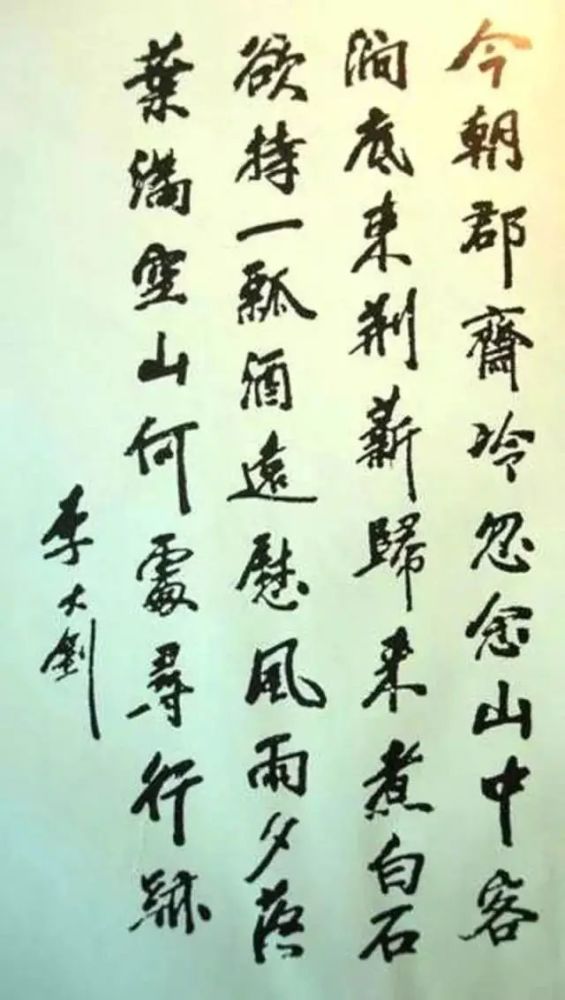 今朝郡齋冷忽念山中客
澗底束荆薪歸来煮白石
欲持一瓢酒遠慰風雨夕落
葉滿空山何處尋行跡
李大釗